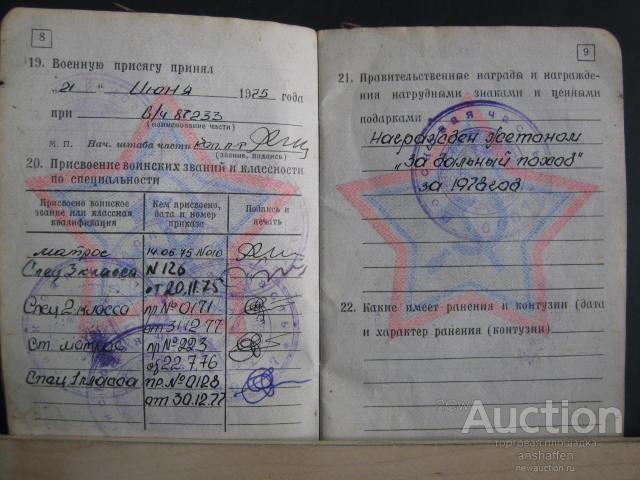 8
19. Военную присягу принял
„21“ Июня 1975 года
при в/ч 87233
(наименование части)
М. П. Нач. штаба части кап.л-т
(звание, подпись)
20. Присвоение воинских званий и классности
по специальности
Присвоено воинское звание или классная квалификация
Кем присвоено, дата и номер приказа
Подпись и печать
матрос 14.06.75 №010
Спец 3 класса N 126
от 20.11.75
Спец 2 класса пр №0171
от 31.12.77
Ст. матрос пр №223
от 22.7.76
Спец 1 класса пр. №0128
от 30.12.77
9
21. Правительственные награды и награжде-
ния нагрудными знаками и ценными
подарками
Награжден жетоном
„За дальный поход“
за 1978 год
22. Какие имеет ранения и контузии (дата
и характер ранения (контузии)
new
Auction
торговая площадка
anshaffen
newauction.ru